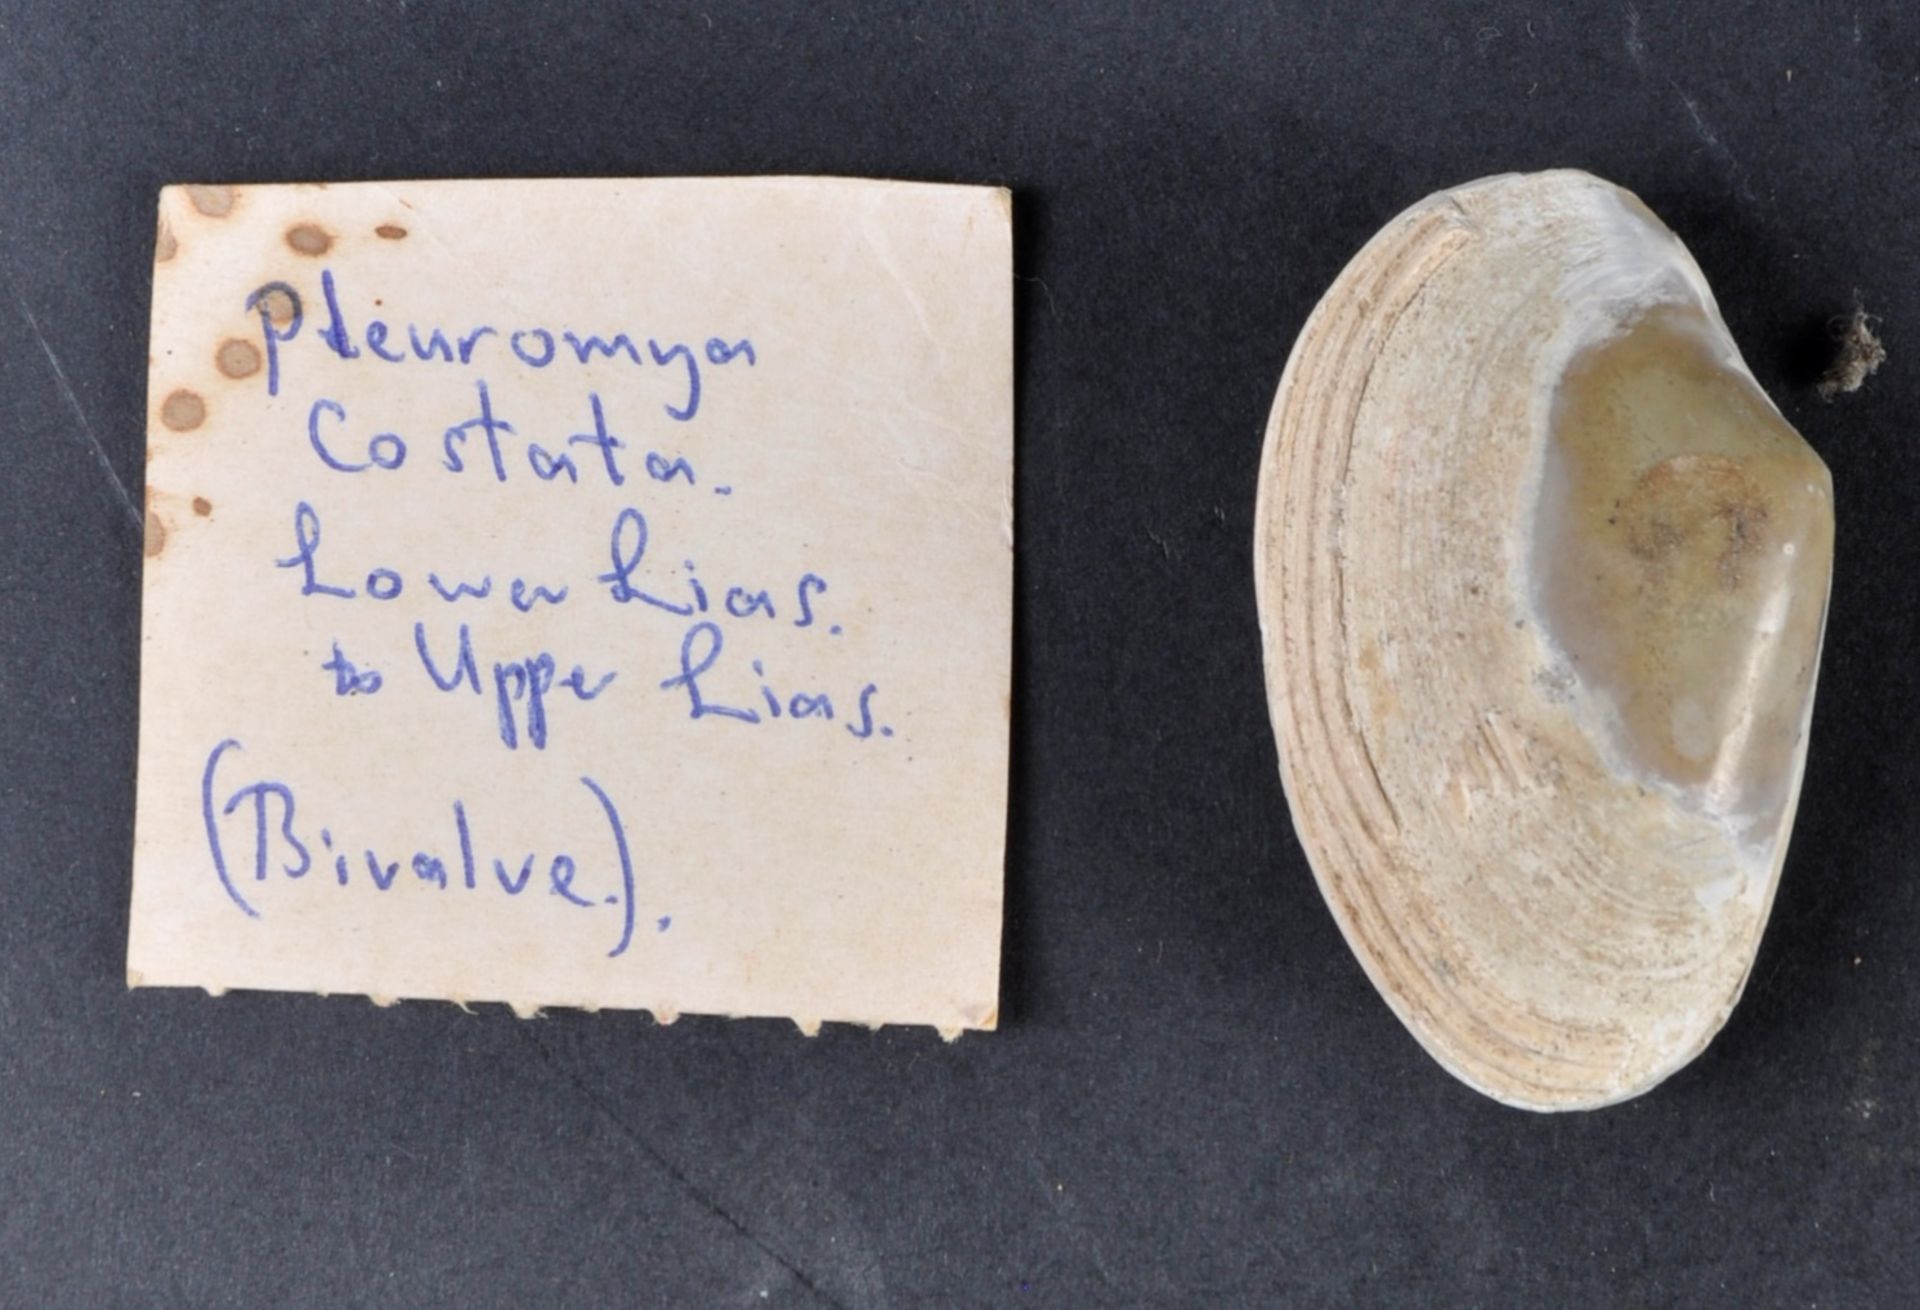 Pleuromya
Costata.
Lower Lias.
to Upper Lias.
(Bivalve.).